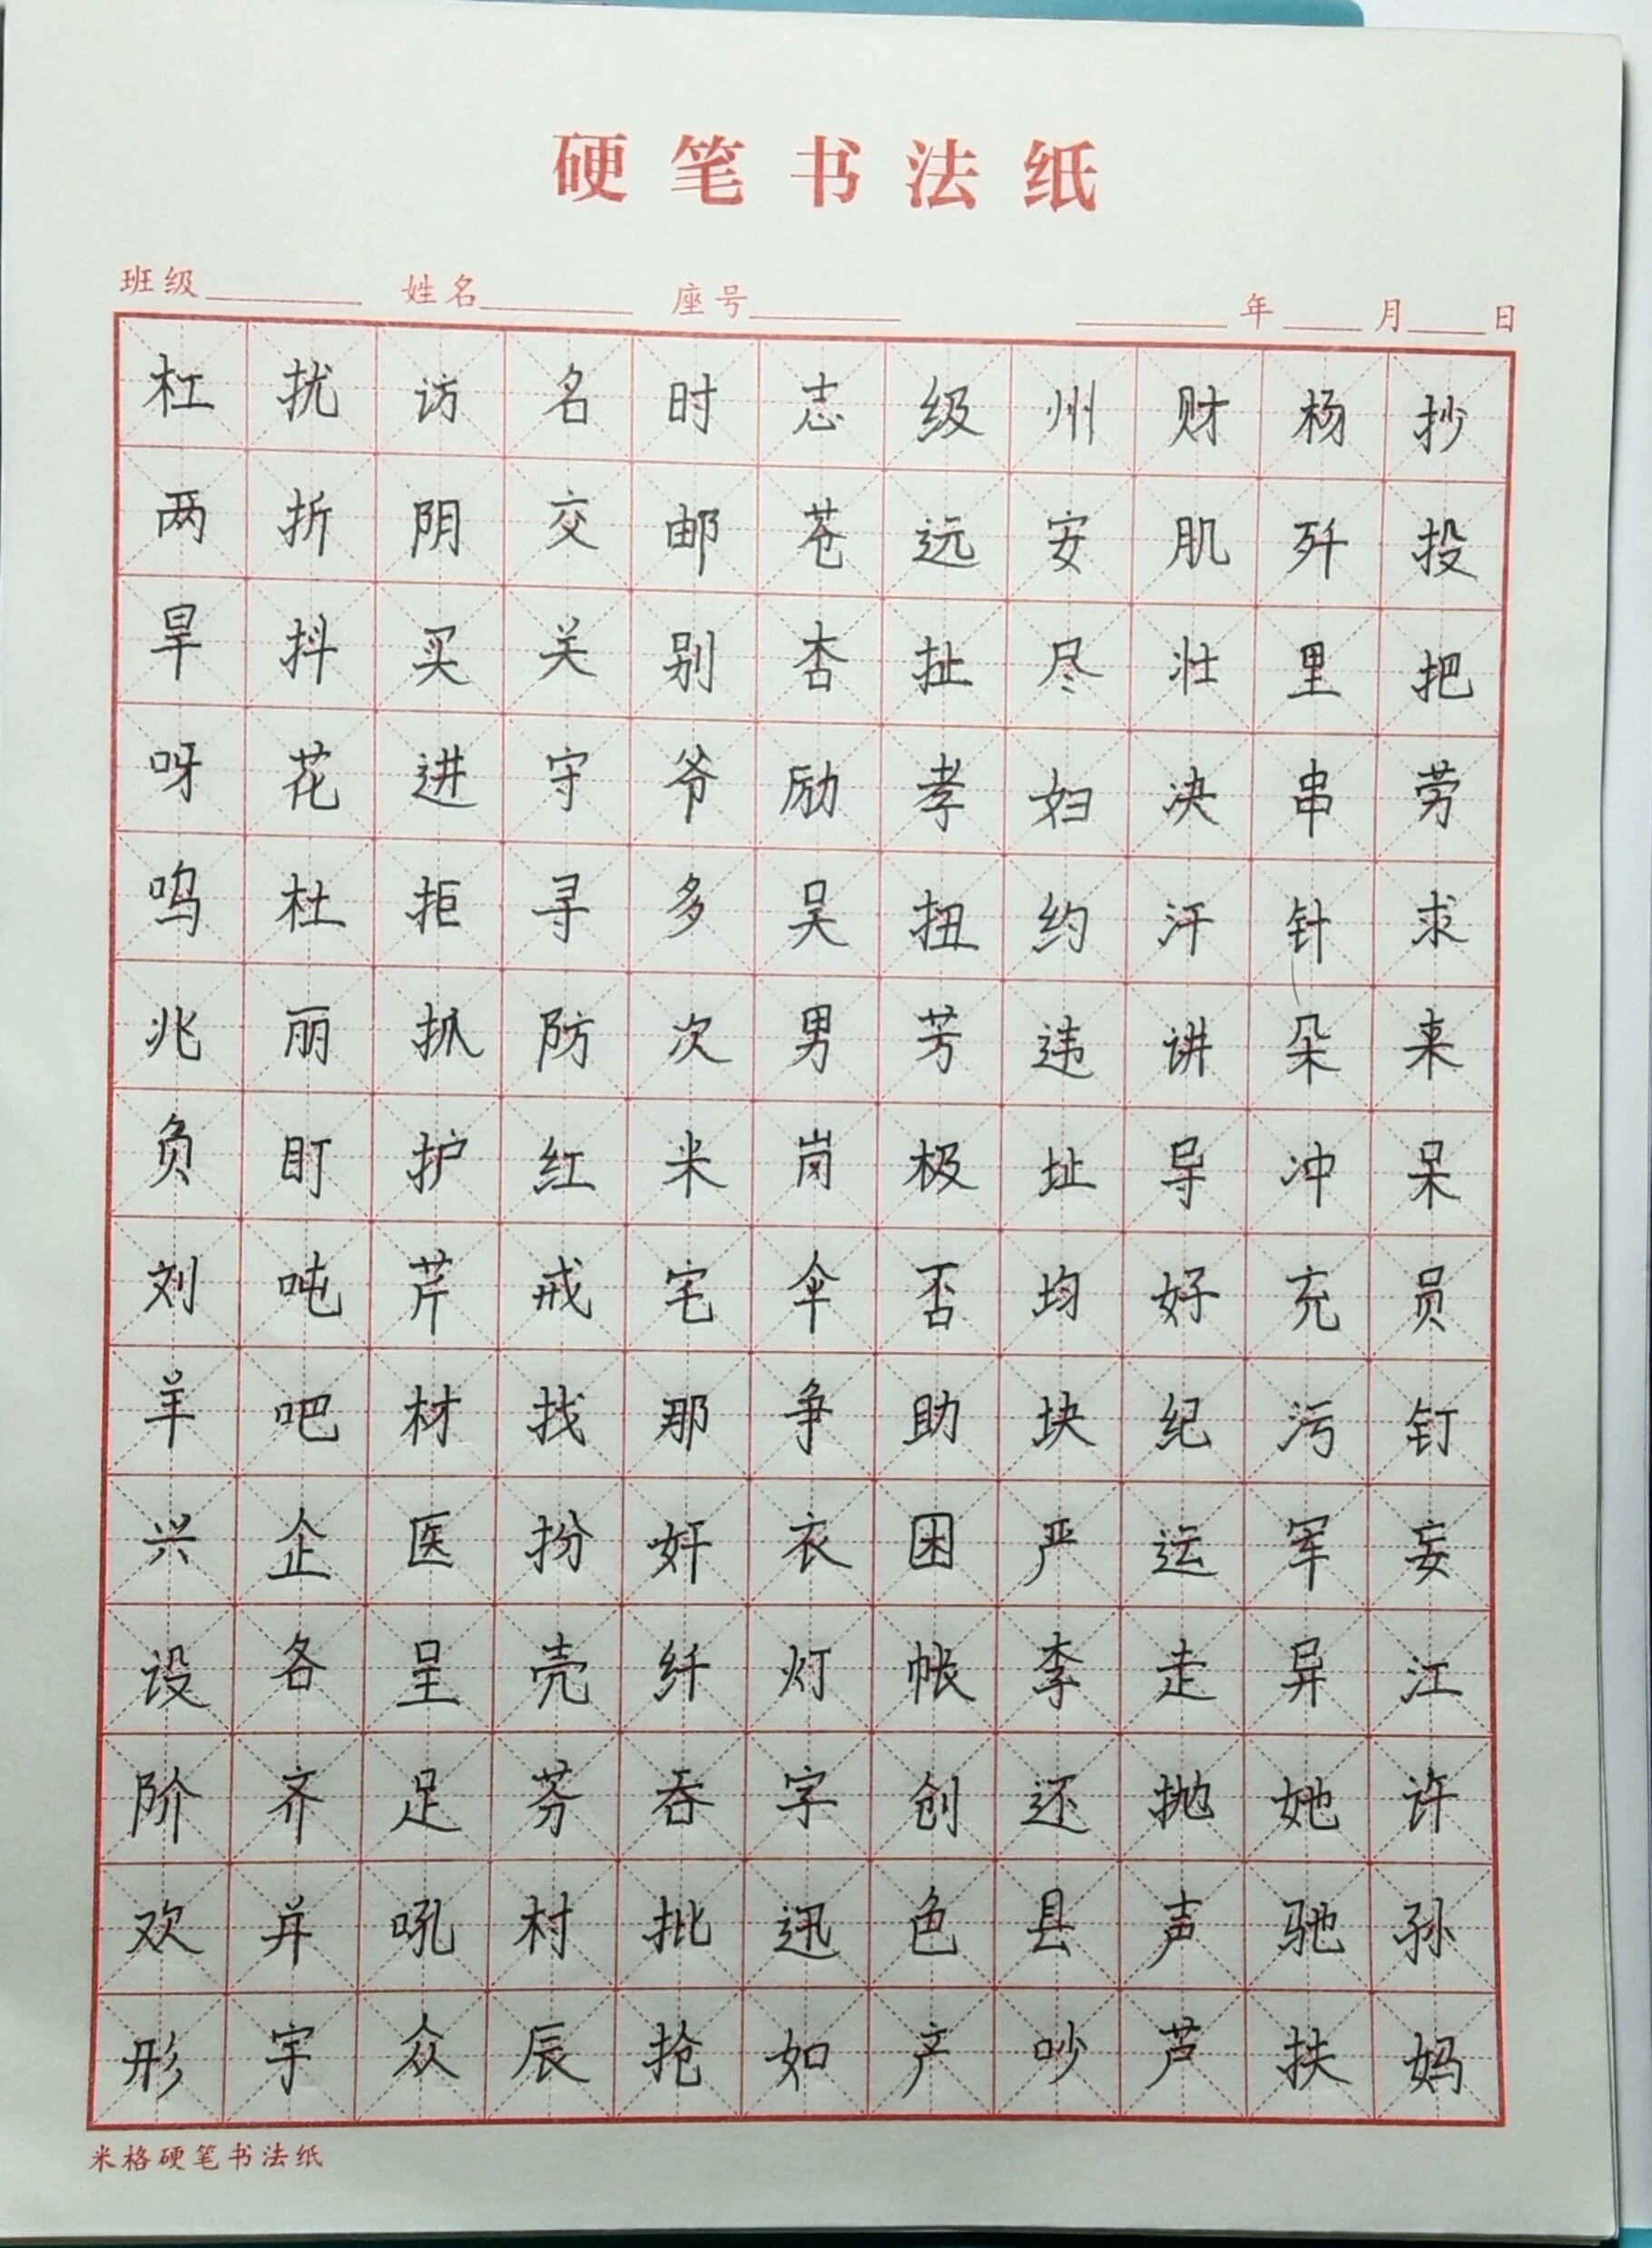 硬笔书法纸
班级 姓名 座号 年 月 日
杠扰访名时志级州财杨抄
两折阴交邮苍远安肌歼投
旱抖买关别杏扯尽壮里把
呀花进守爷励孝妇决串劳
呜杜拒寻多吴扭约汗针求
兆丽抓防次男芳违讲朵来
负盯护红米岗极址导冲呆
刘吨芹戒宅伞否均好充员
羊吧材找那争助块纪污钉
兴企医扮奸衣困严运军妄
设各呈壳纤灯帐李走异江
阶齐足芬吞字创还抛她许
欢并吼村批迅色县声驰孙
形宇众辰抢如产吵芦扶妈
米格硬笔书法纸